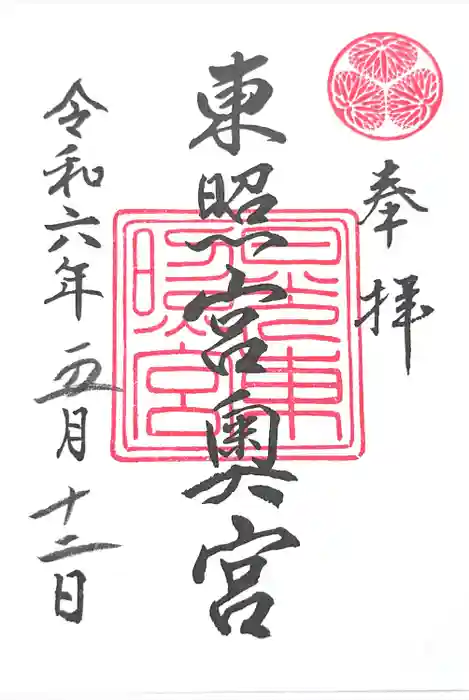 奉拝
東照宮奥宮
日光東照宮
令和六年五月十二日